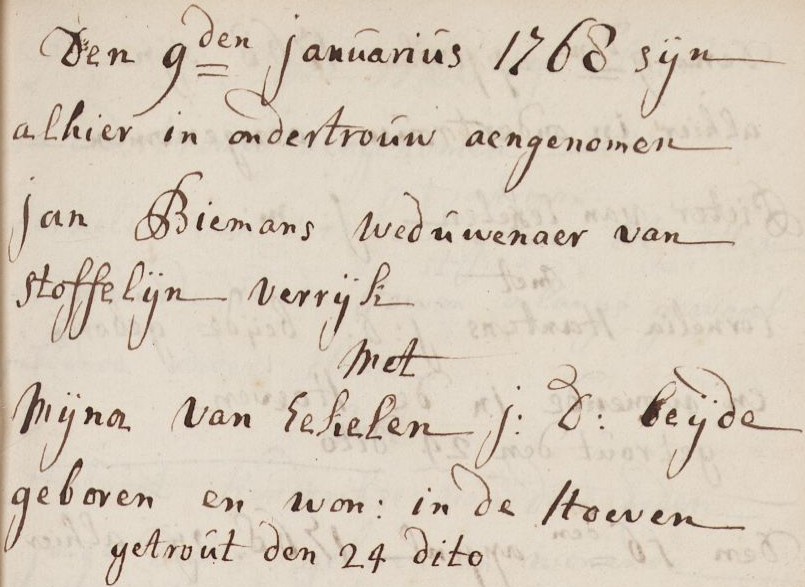 Den 9den januarius 1768 sijn
alhier in ondertrouw aengenomen
jan Biemans weduwenaer van
stoffelijn verrijk
Met
Mijna van Eekelen j: D: beijde
geboren en won: in de Hoeven
getrout den 24 dito